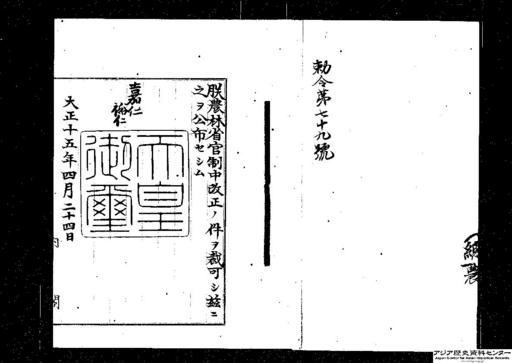 勅令第七十九號
朕農林省官制中改正ノ件ヲ裁可シ茲ニ
之ヲ公布セシム
嘉仁
裕仁
天皇
御璽
大正十五年四月二十四日
内閣
アジア歴史資料センター
Japan Center for Asian Historical Records